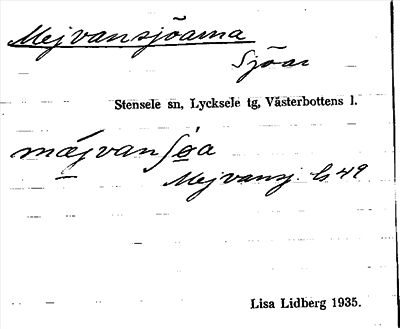 Mejvansjöarna
Sjöar
Stensele sn, Lycksele tg, Västerbottens l.
mæjvanʃøa
Mejvansj. Gs 49
Lisa Lidberg 1935.